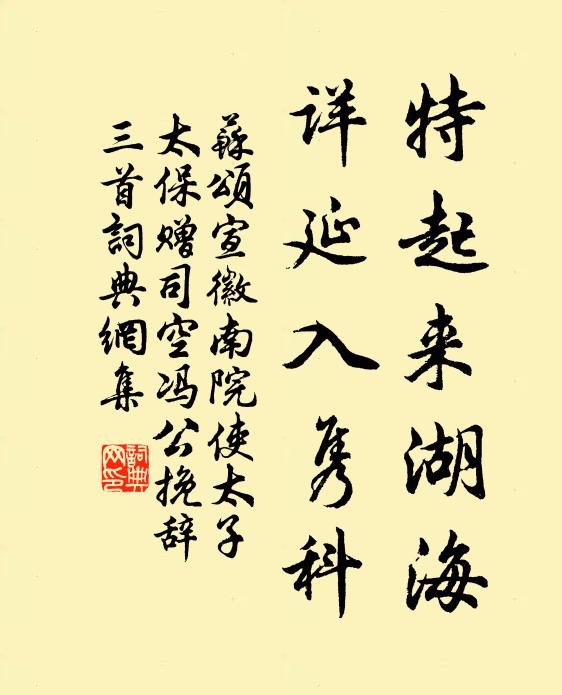 特起来湖海
详延入隽科
蘇頌宣徽南院使太子
太保赠司空冯公挽辞
三首詞典網集
詞典網印